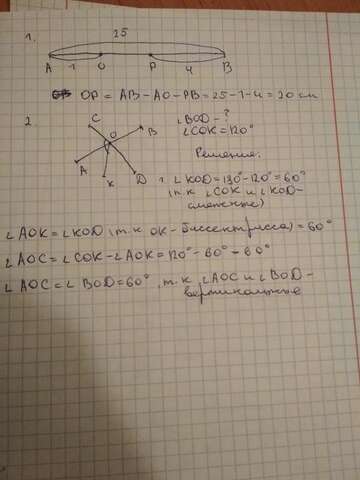 1.
25
A 1 O P 4 B
OP = AB - AO - PB = 25 - 1 - 4 = 20 см
2.
C
O B
A
K D
∠BOD - ?
∠COK = 120°
Решение:
∠KOD = 180° - 120° = 60°
(т.к ∠COK и ∠KOD -
смежные)
∠AOK = ∠KOD (т.к OK - биссектрисса) = 60°
∠AOC = ∠COK - ∠AOK = 120° - 60° = 60°
∠AOC = ∠BOD = 60°, т.к ∠AOC и ∠BOD -
вертикальные